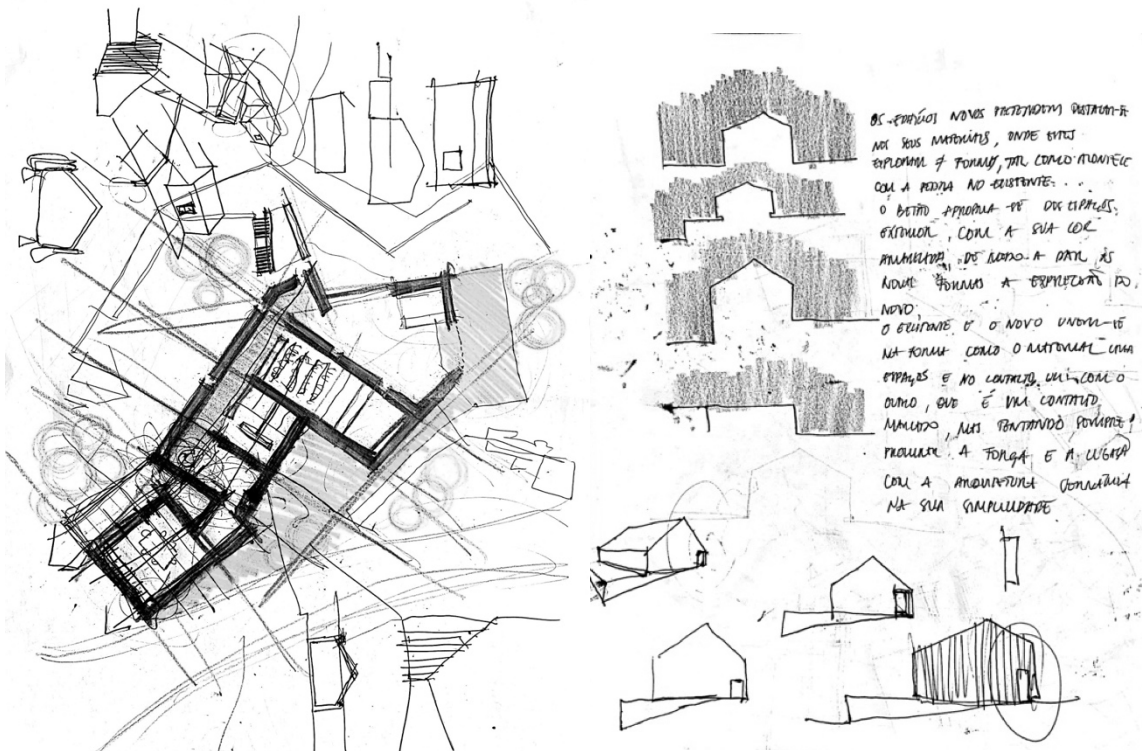 OS EDIFÍCIOS NOVOS PRETENDEM DESTACAR-SE
NOS SEUS MATERIAIS, ONDE ESTES
EXPLORAM A FORMA, TAL COMO ACONTECE
COM A PEDRA NO EXISTENTE...
O BETÃO APROPRIA-SE DOS ESPAÇOS
EXTERIOR, COM A SUA COR
DE MODO A DAR ÀS
NOVAS FORMAS A EXPRESSÃO DO
NOVO,
O EXISTENTE E O NOVO UNEM-SE
NA FORMA COMO O MATERIAL CRIA
ESPAÇOS E NO CONTACTO UM COM O
OUTRO, QUE É UM CONTACTO
MAS TENTANDO SEMPRE
PROCURAR A FORÇA E A LIGAÇÃO
COM A ARQUITETURA VERNÁCULA
NA SUA SIMPLICIDADE